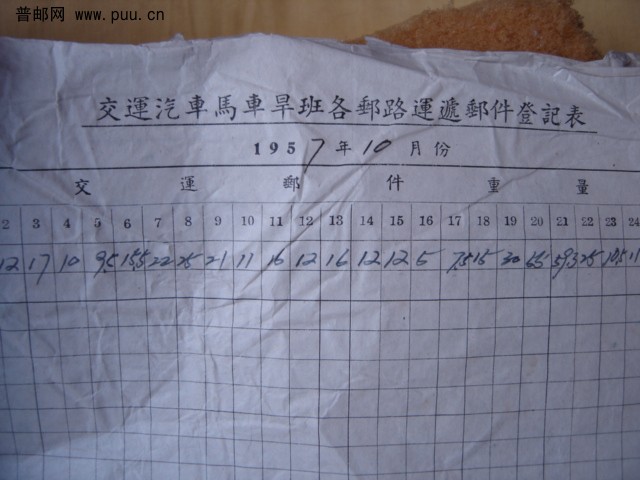 普邮网 www.puu.cn
交運汽車馬車旱班各郵路運遞郵件登記表
1957年10月份
交運郵件重量
2 3 4 5 6 7 8 9 10 11 12 13 14 15 16 17 18 19 20 21 22 23 24
12 17 10 9.5 15.5 22 25 21 11 16 12 16 12 12 5 7.5 15 30 25